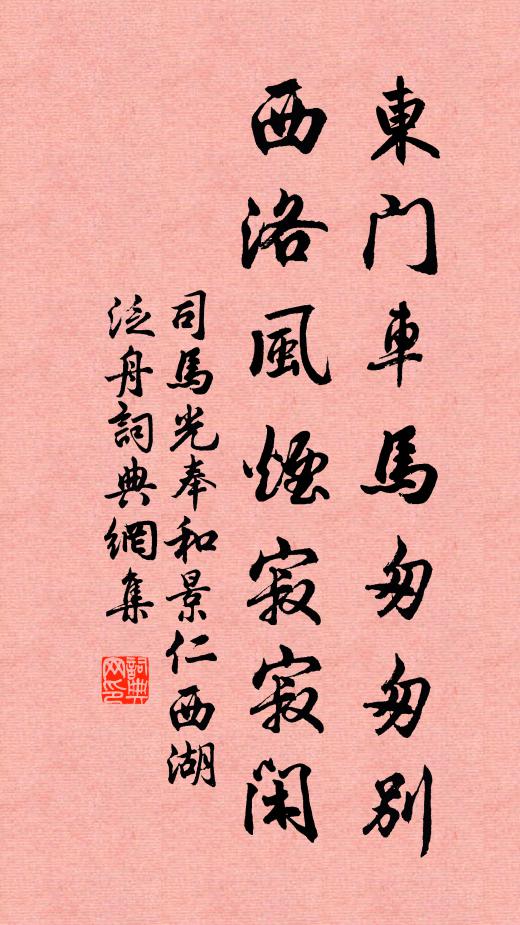 東門車馬匆匆別
西洛風煙寂寂閑
司馬光奉和景仁西湖
泛舟詞典網集
詞典網印